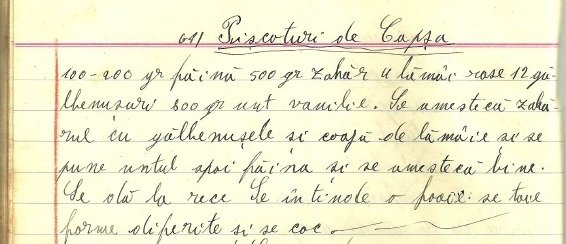 611 Pișcoturi de Capșa
100-200 gr făină 500 gr zahăr 4 lămâi rase 12 găl
benușuri 800 gr unt vanilie. Se amestică zahă
rul cu gălbenușele și coajă de lămâie și se
pune untul apoi făina și se amestecă bine.
Se dă la rece Se întinde o foaie se taie
forme diferite și se coc.